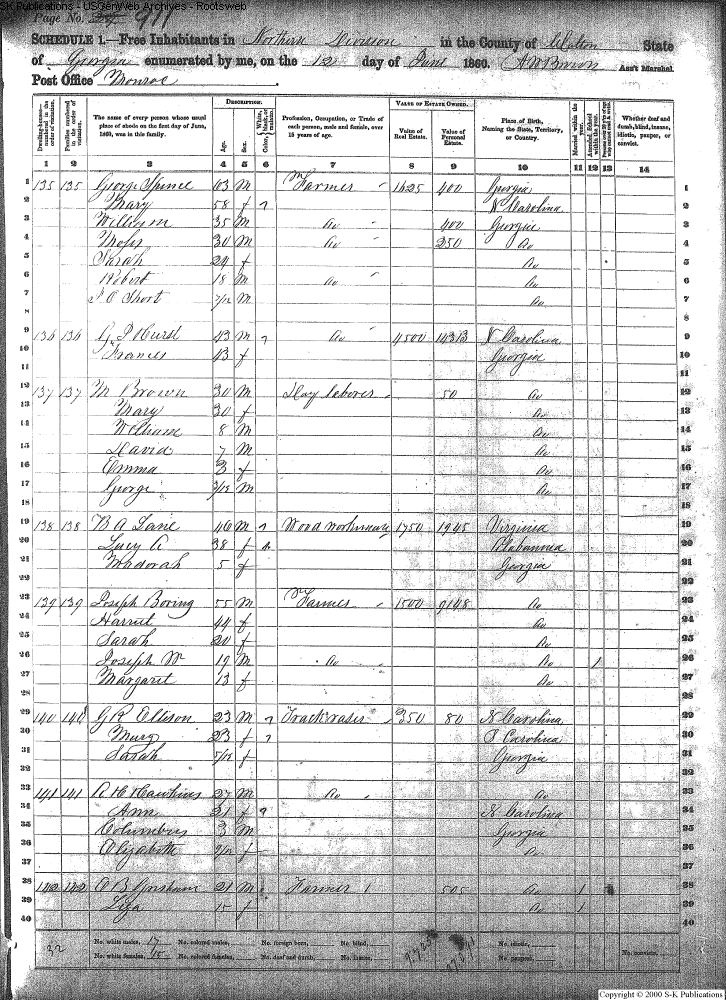 S-K Publications - USGenWeb Archives - Rootsweb
Page No. 911
SCHEDULE 1.—Free Inhabitants in Northern Division in the County of Walton State
of Georgia enumerated by me, on the 12 day of June 1860. Ass't Marshal
Post Office Monroe
Dwelling-houses—numbered in the order of visitation.
Families numbered in the order of visitation.
The name of every person whose usual place of abode on the first day of June, 1860, was in this family.
DESCRIPTION.
Age.
Sex.
Color, White, black, or mulatto.
Profession, Occupation, or Trade of each person, male and female, over 15 years of age.
VALUE OF ESTATE OWNED.
Value of Real Estate.
Value of Personal Estate.
Place of Birth, Naming the State, Territory, or Country.
Married within the year.
Attended School within the year.
Persons over 20 y'rs of age who cannot read & write.
Whether deaf and dumb, blind, insane, idiotic, pauper, or convict.
1 2 3 4 5 6 7 8 9 10 11 12 13 14
1 135 135 George Spence 63 M Farmer 1625 400 Georgia 1
2 Mary 58 f N Carolina 2
3 William 35 M Do 400 Georgia 3
4 Moss 30 M Do 250 Do 4
5 Sarah 24 f Do 5
6 Robert 18 M Do Do 6
7 J O Short 7/12 M Do 7
8 8
9 136 136 G P Hurst 43 M Do 4500 14313 N Carolina 9
10 Frances 43 f Georgia 10
11 11
12 137 137 M Brown 30 M Day laborer 50 Do 12
13 Mary 30 f Do 13
14 William 8 M Do 14
15 David 7 M Do 15
16 Emma 3 f Do 16
17 George 3/12 M Do 17
18 18
19 138 138 B A Lane 46 M 1750 1945 Virginia 19
20 Lucy A 38 f Alabama 20
21 Madorah 5 f Georgia 21
22 22
23 139 139 Joseph Boring 55 M Farmer 1500 9148 Do 23
24 Harriet 44 f Do 24
25 Sarah 20 f Do 25
26 Joseph M 19 M Do Do 1 26
27 Margaret 13 f Do 27
28 28
29 140 140 G R Ellison 23 M 350 80 N Carolina 29
30 Mary 23 f S Carolina 30
31 Sarah 5/12 f Georgia 31
32 32
33 141 141 A H Hawkins 27 M Do Do 33
34 Ann 21 f N Carolina 34
35 Columbus 3 M Georgia 35
36 Elizabeth f Do 36
37 37
38 142 142 O B Gresham 21 M Farmer 505 Do 1 38
39 Liza 15 f Do 1 39
40 40
32 No. white males, 17 No. colored males, No. foreign born, No. blind, No. idiotic,
No. white females, 15 No. colored females, No. deaf and dumb, No. insane, No. paupers, No. convicts,
Copyright © 2000 S-K Publications